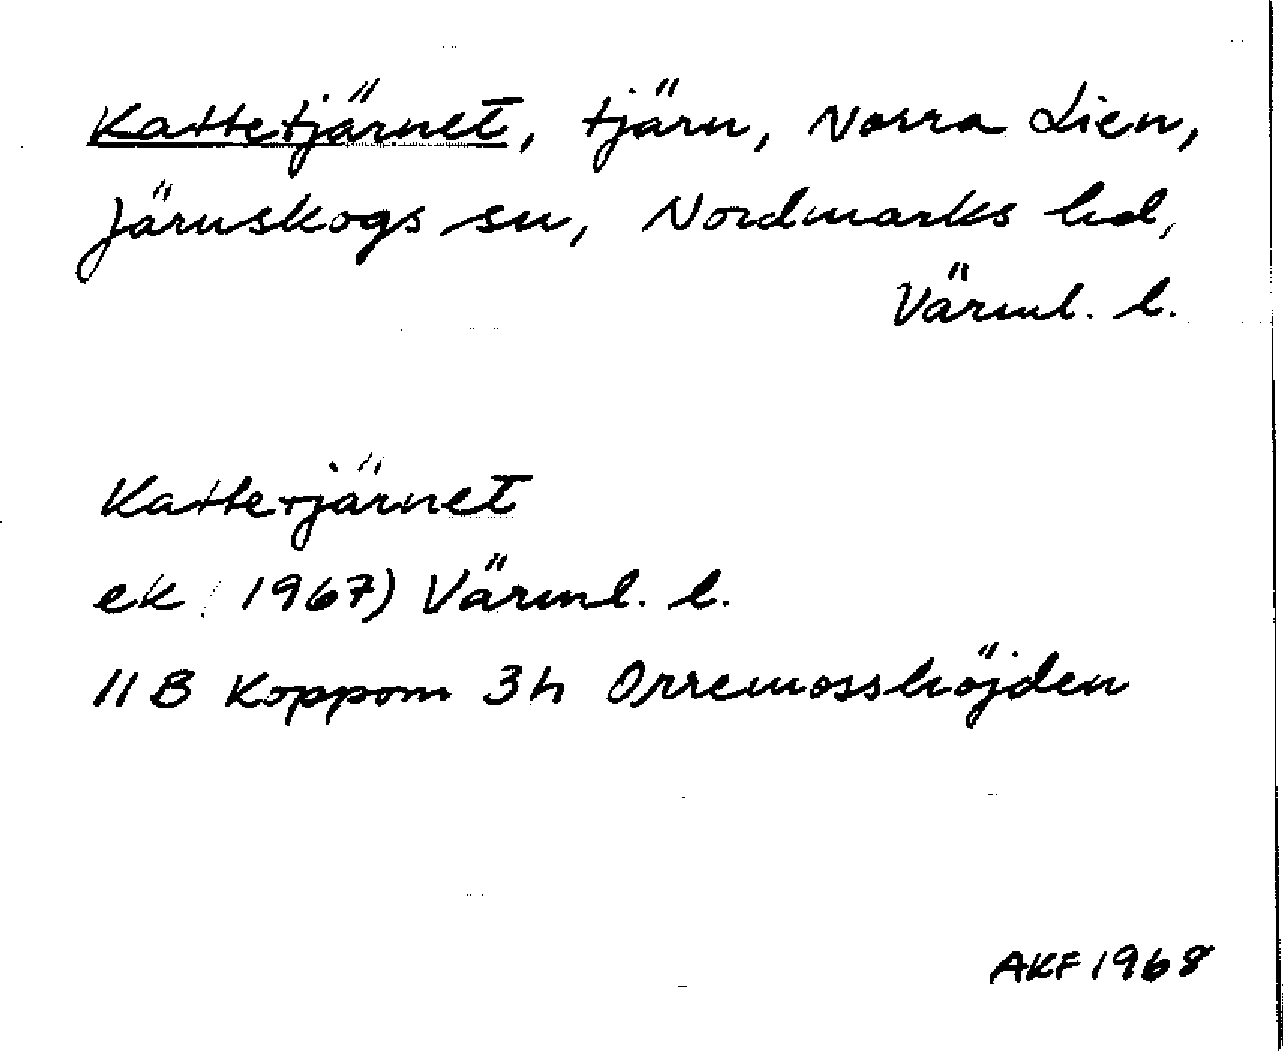 Kattetjärnet, tjärn, Norra Lien,
Järnskogs sn, Nordmarks hd,
Värml. l.
Kattetjärnet
ek (1967) Värml. l.
11 B Koppom 3h Orremosshöjden
AKF 1968